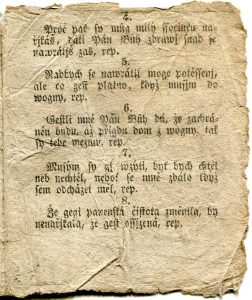 4.
Proč pak sy můg milý ssocinku na-
řjkáš, dali Pán Bůh zdrawj snad se
nawrátjš zas, rep.
5.
Radbych se nawrátil moge potěssenj,
ale co gest platno, když musým do
wogny, rep.
6.
Gestli mně Pán Bůh dá, že zachrá-
něn budu, až přigdu dom z wogny, tak
sy tebe wezmu, rep.
7.
Musým sy gj wzýti, byt bych chtěl
neb nechtěl, neboť se mně zdálo když
sem odcházet měl, rep.
8.
Že gegj panenská čistota změnila, by
nenařjkala, že gest ossyzená, rep.